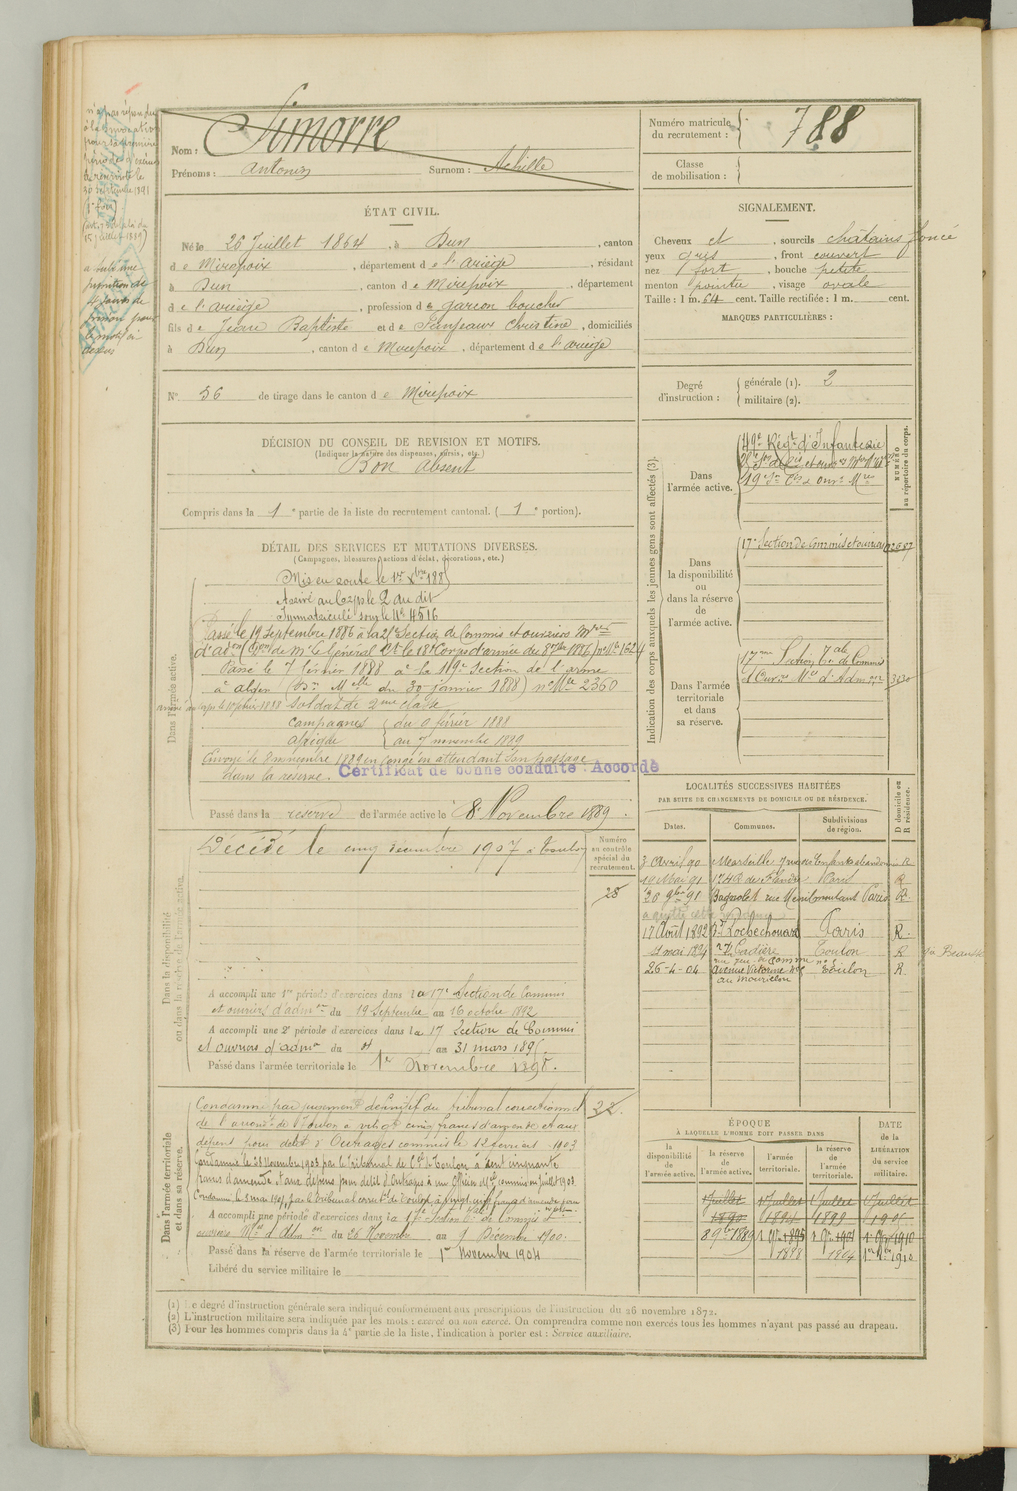 n'a pas répondu
à la
pour
période d'exer
de réserviste le
30 septembre 1891
15 juillet 1889)
a subi une
punition de
4 jours de
prison pour
le motif ci
dessus
Simorre
Nom :
Prénoms : Antonin Surnom : Achille
Numéro matricule
du recrutement : 788
Classe
de mobilisation :
ÉTAT CIVIL.
Né le 26 Juillet 1864, à Dun, canton
de Mirepoix, département de l'ariège, résidant
à Dun, canton de Mirepoix, département
de l'ariège, profession de garçon boucher
fils de Jean Baptiste et de Christine, domiciliés
à Dun, canton de Mirepoix, département de l'ariège
N° 56 de tirage dans le canton de Mirepoix
SIGNALEMENT.
Cheveux et, sourcils châtains foncé
yeux gris, front couvert
nez fort, bouche petite
menton pointu, visage ovale
Taille : 1 m. 64 cent. Taille rectifiée : 1 m. cent.
MARQUES PARTICULIÈRES :
Degré
d'instruction :
générale (1). 2
militaire (2).
DÉCISION DU CONSEIL DE REVISION ET MOTIFS.
(Indiquer la nature des dispenses, sursis, etc.)
Bon absent
Compris dans la 1e partie de la liste du recrutement cantonal. (1e portion).
DÉTAIL DES SERVICES ET MUTATIONS DIVERSES.
(Campagnes, blessures, actions d'éclat, décorations, etc.)
Dans l'armée active.
Mis en route le 1er Xbre 188
Arrivé au Corps le 2 du dit
Immatriculé sous le N° 4516
Passé le 19 Septembre 1886 à la Section de Commis et ouvriers
d'adon de Mr le Général Ct le 18e Corps d'armée du 8 7bre 1886) n° Mle 1624
Passé le 7 février 1888 à la 19e Section de l'arme
à alger (Don Melle du 30 janvier 1888) n° Mle 2360
arrivé au corps le 10 février 1888 soldat de 2me classe
Campagnes du 9 février 1888
afrique au 7 novembre 1889
Envoyé le 8 novembre 1889 en congé en attendant son passage
dans la réserve. Certificat de bonne conduite : Accordé
Passé dans la réserve de l'armée active le 8 Novembre 1889.
Indication des corps auxquels les jeunes gens sont affectés (3).
NUMÉRO
au répertoire du corps.
Dans
l'armée active.
49e Régt d'Infanterie
19e Son Cis & Ouvrs Mres
Dans
la disponibilité
ou
dans la réserve
de
l'armée active.
17e Section de Commis et ouvriers
Dans l'armée
territoriale
et dans
sa réserve.
17eme Section Tale de Commis
& Ouvrs Mres d'Admon 3030
Dans la disponibilité
ou dans la réserve de l'armée active.
Décédé le cinq décembre 1907 à Toulon
Numéro
au contrôle
spécial du
recrutement.
25
A accompli une 1re période d'exercices dans la 17e Section de Commis
et ouvriers d'admon du 19 Septembre au 16 octobre 1892
A accompli une 2e période d'exercices dans la 17 Section de Commis
et ouvriers d'admon du 4 au 31 mars 1895.
Passé dans l'armée territoriale le 1er Novembre 1898.
LOCALITÉS SUCCESSIVES HABITÉES
PAR SUITE DE CHANGEMENTS DE DOMICILE OU DE RÉSIDENCE.
Dates. Communes. Subdivisions
de région. D domicile ou
R résidence.
3 avril 90 Marseille R
19 Mai 91 174 R de Flandre Paris R
30 9bre 91 Bagnolet rue Menilmontant Paris R.
a quitté cette résidence
17 Août 1892 Bd Rochechouart Paris R.
4 mai 1894 Toulon R
26-4-04 avenue Toulon R
au Mourillon
Dans l'armée territoriale
et dans sa réserve.
Condamné par jugement définitif du tribunal correctionnel
de l'arrondt de Toulon à vingt cinq francs d'amende et aux
dépens pour délit d'Outrages commis le 12 1903
Condamné le 28 Novembre 1903 par le Tribunal de Toulon à cent cinquante
francs d'amende & aux dépens pour délit d'Outrages à un Officier Mel commis en juillet 1903
22.
A accompli une période d'exercices dans la 17e Section Tale de Commis et
ouvriers Mres d'Admon du 26 Novembre au 9 Décembre 1900.
Passé dans la réserve de l'armée territoriale le 1er Novembre 1904
Libéré du service militaire le
ÉPOQUE
À LAQUELLE L'HOMME DOIT PASSER DANS
la
disponibilité
de
l'armée active.
la réserve
de
l'armée active.
l'armée
territoriale.
la réserve
de
l'armée
territoriale.
DATE
de la
LIBÉRATION
du service
militaire.
1 Juillet 1 Juillet 1 Juillet 1 Juillet
1890 1894 1899 1905
8 9bre 1889
1898 1904 1er 9bre 1910
(1) Le degré d'instruction générale sera indiqué conformément aux prescriptions de l'instruction du 26 novembre 1872.
(2) L'instruction militaire sera indiquée par les mots : exercé ou non exercé. On comprendra comme non exercés tous les hommes n'ayant pas passé au drapeau.
(3) Pour les hommes compris dans la 4e partie de la liste, l'indication à porter est : Service auxiliaire.